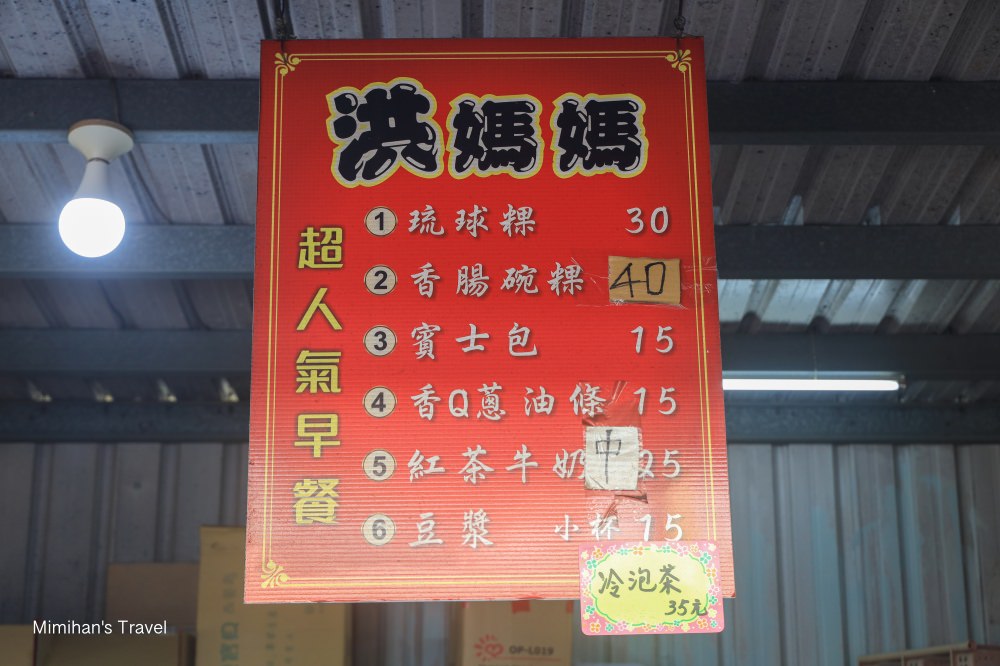 洪媽媽
超人氣早餐
1 琉球粿 30
2 香腸碗粿 40
3 賓士包 15
4 香Q蔥油條 15
5 紅茶牛奶 中 25
6 豆漿 小杯 15
冷泡茶
35元
OP-L019
Mimihan's Travel